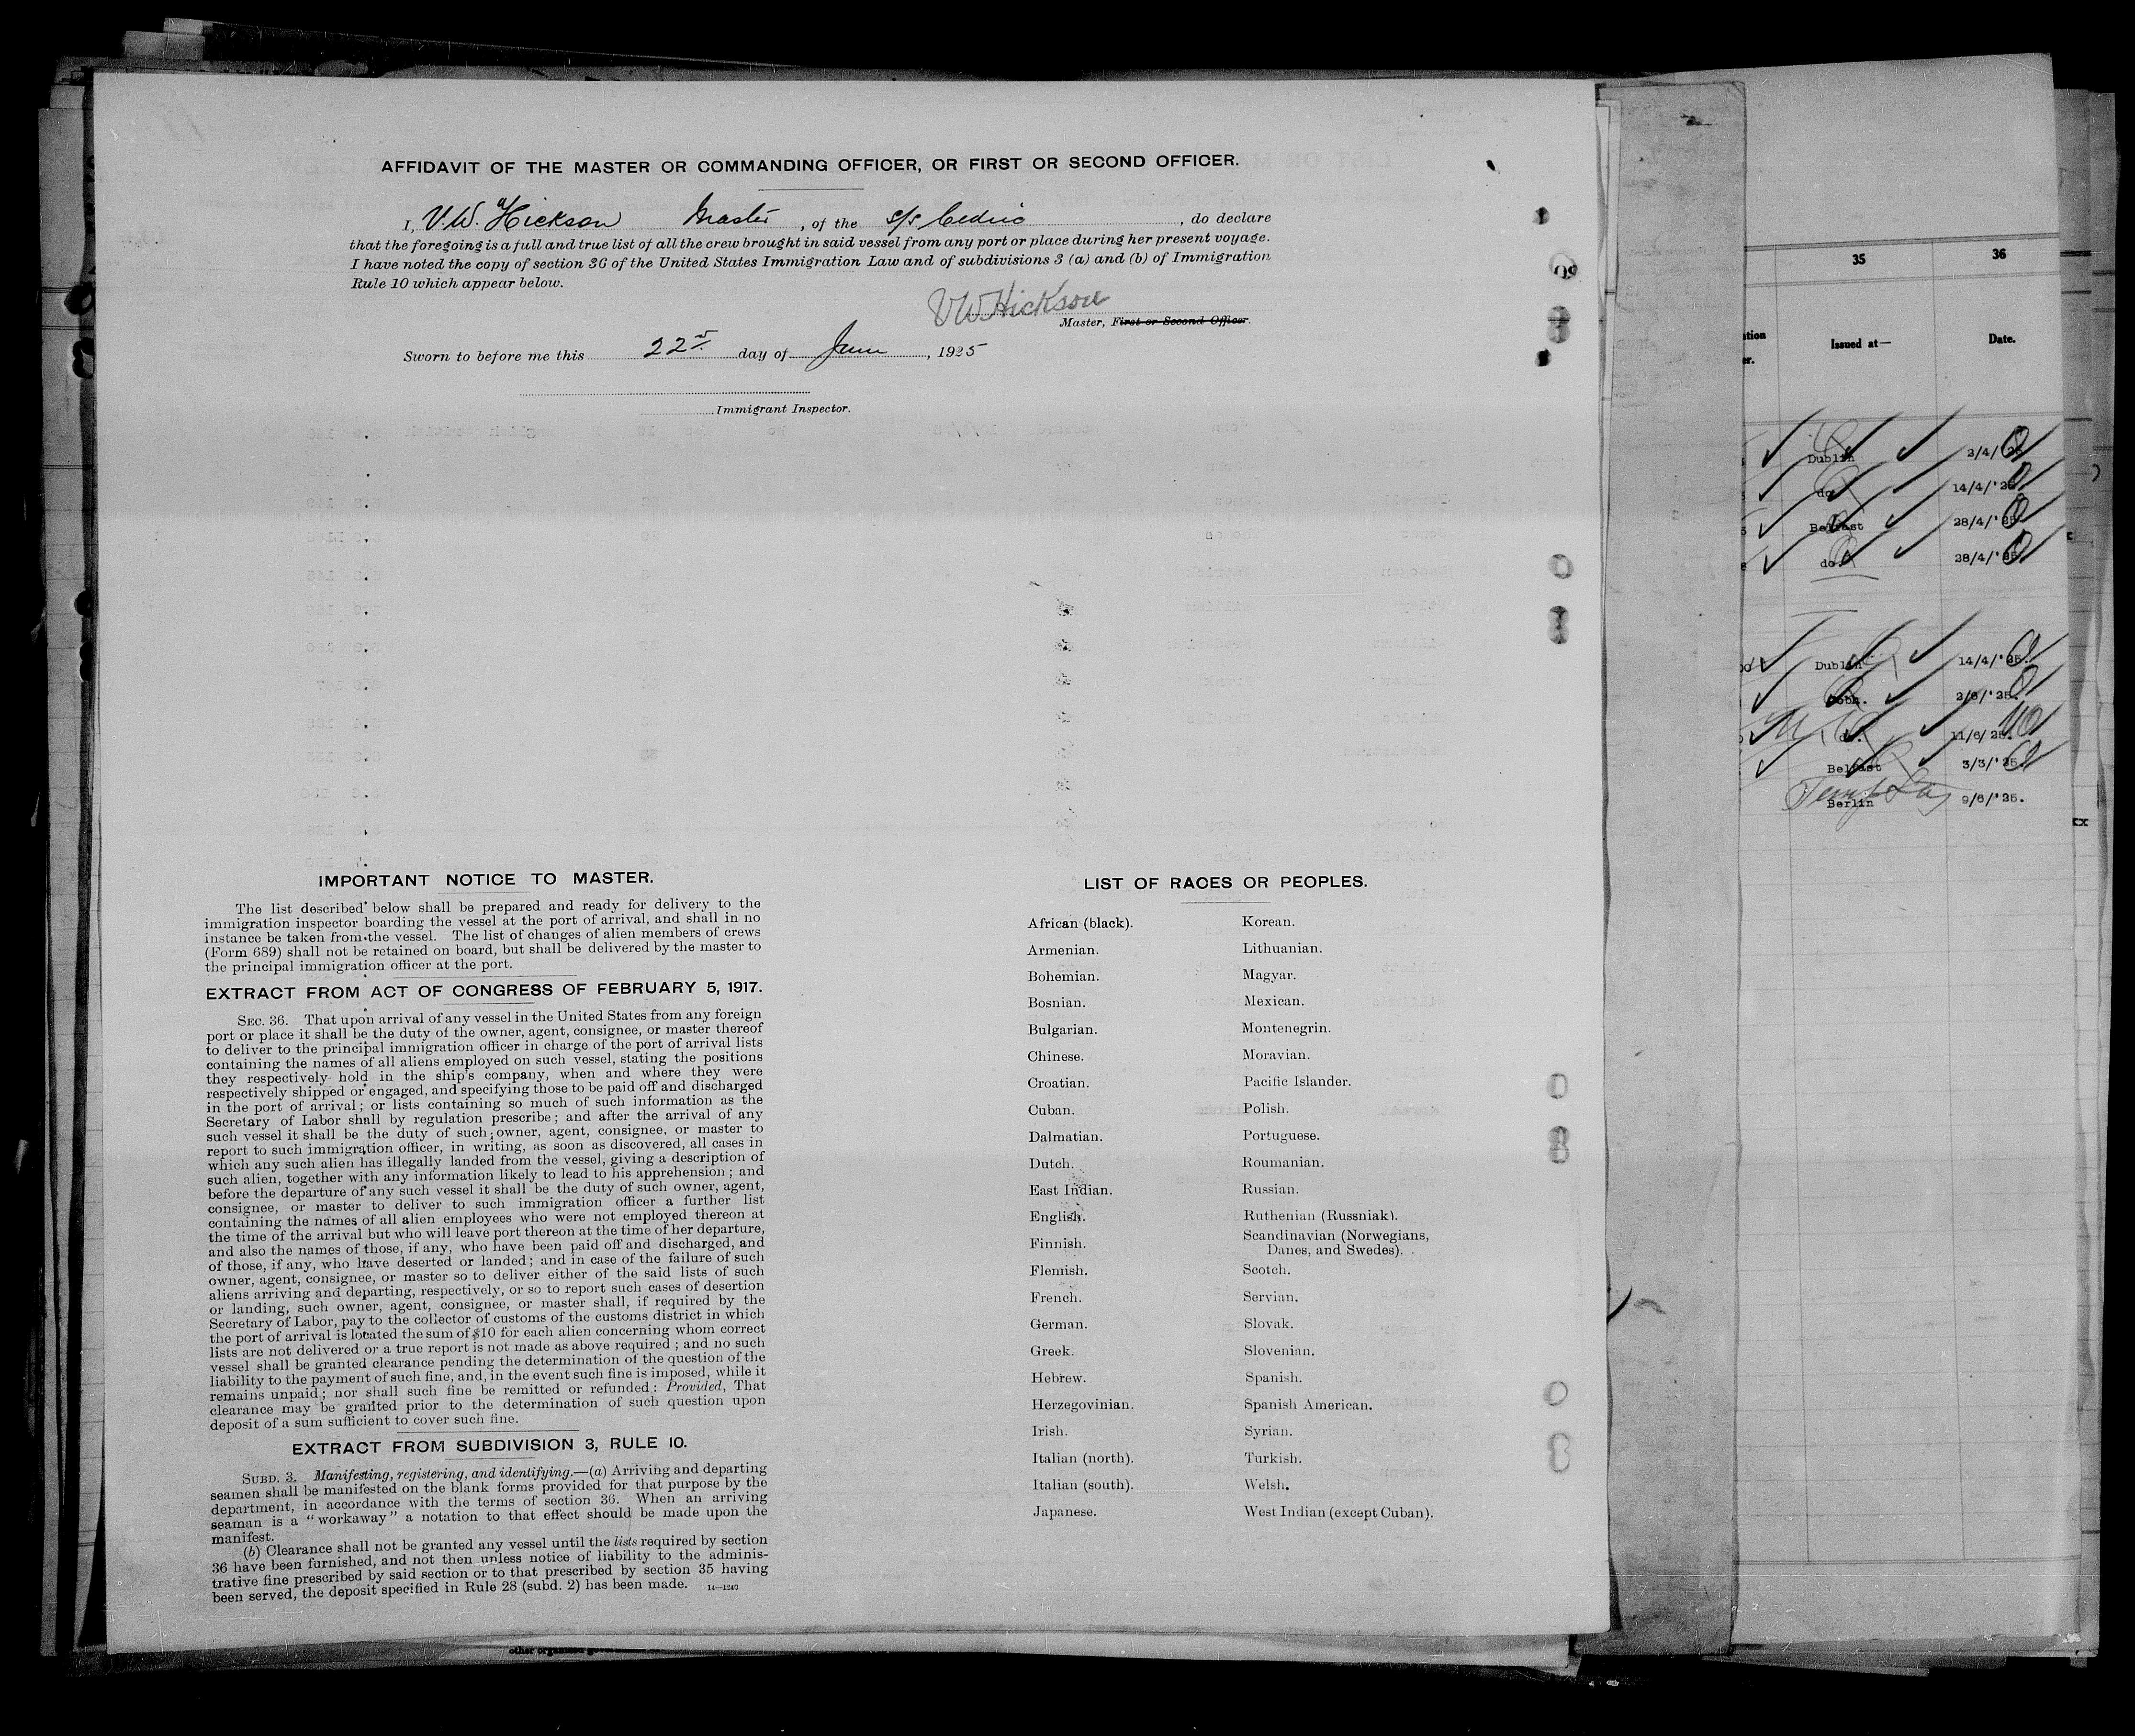 AFFIDAVIT OF THE MASTER OR COMMANDING OFFICER, OR FIRST OR SECOND OFFICER.
I, V.W. Hickson Master, of the s/s Cedric, do declare
that the foregoing is a full and true list of all the crew brought in said vessel from any port or place during her present voyage.
I have noted the copy of section 36 of the United States Immigration Law and of subdivisions 3 (a) and (b) of Immigration
Rule 10 which appear below.
VW Hickson
Master, First or Second Officer.
Sworn to before me this 22nd day of June, 1925
Immigrant Inspector.
IMPORTANT NOTICE TO MASTER.
The list described below shall be prepared and ready for delivery to the
immigration inspector boarding the vessel at the port of arrival, and shall in no
instance be taken from the vessel. The list of changes of alien members of crews
(Form 689) shall not be retained on board, but shall be delivered by the master to
the principal immigration officer at the port.
EXTRACT FROM ACT OF CONGRESS OF FEBRUARY 5, 1917.
SEC. 36. That upon arrival of any vessel in the United States from any foreign
port or place it shall be the duty of the owner, agent, consignee, or master thereof
to deliver to the principal immigration officer in charge of the port of arrival lists
containing the names of all aliens employed on such vessel, stating the positions
they respectively hold in the ship's company, when and where they were
respectively shipped or engaged, and specifying those to be paid off and discharged
in the port of arrival; or lists containing so much of such information as the
Secretary of Labor shall by regulation prescribe; and after the arrival of any
such vessel it shall be the duty of such owner, agent, consignee, or master to
report to such immigration officer, in writing, as soon as discovered, all cases in
which any such alien has illegally landed from the vessel, giving a description of
such alien, together with any information likely to lead to his apprehension; and
before the departure of any such vessel it shall be the duty of such owner, agent,
consignee, or master to deliver to such immigration officer a further list
containing the names of all alien employees who were not employed thereon at
the time of the arrival but who will leave port thereon at the time of her departure,
and also the names of those, if any, who have been paid off and discharged, and
of those, if any, who have deserted or landed; and in case of the failure of such
owner, agent, consignee, or master so to deliver either of the said lists of such
aliens arriving and departing, respectively, or so to report such cases of desertion
or landing, such owner, agent, consignee, or master shall, if required by the
Secretary of Labor, pay to the collector of customs of the customs district in which
the port of arrival is located the sum of $10 for each alien concerning whom correct
lists are not delivered or a true report is not made as above required; and no such
vessel shall be granted clearance pending the determination of the question of the
liability to the payment of such fine, and, in the event such fine is imposed, while it
remains unpaid; nor shall such fine be remitted or refunded: Provided, That
clearance may be granted prior to the determination of such question upon
deposit of a sum sufficient to cover such fine.
EXTRACT FROM SUBDIVISION 3, RULE 10.
SUBD. 3. Manifesting, registering, and identifying.—(a) Arriving and departing
seamen shall be manifested on the blank forms provided for that purpose by the
department, in accordance with the terms of section 36. When an arriving
seaman is a "workaway" a notation to that effect should be made upon the
manifest.
(b) Clearance shall not be granted any vessel until the lists required by section
36 have been furnished, and not then unless notice of liability to the adminis-
trative fine prescribed by said section or to that prescribed by section 35 having
been served, the deposit specified in Rule 28 (subd. 2) has been made. 14—1240
LIST OF RACES OR PEOPLES.
African (black).
Armenian.
Bohemian.
Bosnian.
Bulgarian.
Chinese.
Croatian.
Cuban.
Dalmatian.
Dutch.
East Indian.
English.
Finnish.
Flemish.
French.
German.
Greek.
Hebrew.
Herzegovinian.
Irish.
Italian (north).
Italian (south).
Japanese.
Korean.
Lithuanian.
Magyar.
Mexican.
Montenegrin.
Moravian.
Pacific Islander.
Polish.
Portuguese.
Roumanian.
Russian.
Ruthenian (Russniak).
Scandinavian (Norwegians,
Danes, and Swedes).
Scotch.
Servian.
Slovak.
Slovenian.
Spanish.
Spanish American.
Syrian.
Turkish.
Welsh.
West Indian (except Cuban).
35 36
Issued at— Date.
Dublin 2/4/'25
do. 14/4/'25
Belfast 28/4/'25
do. 28/4/'25
Dublin 14/4/'25.
Cobh. 2/6/'25.
do. 11/6/25.
Belfast 3/3/'25.
Berlin 9/6/'25.